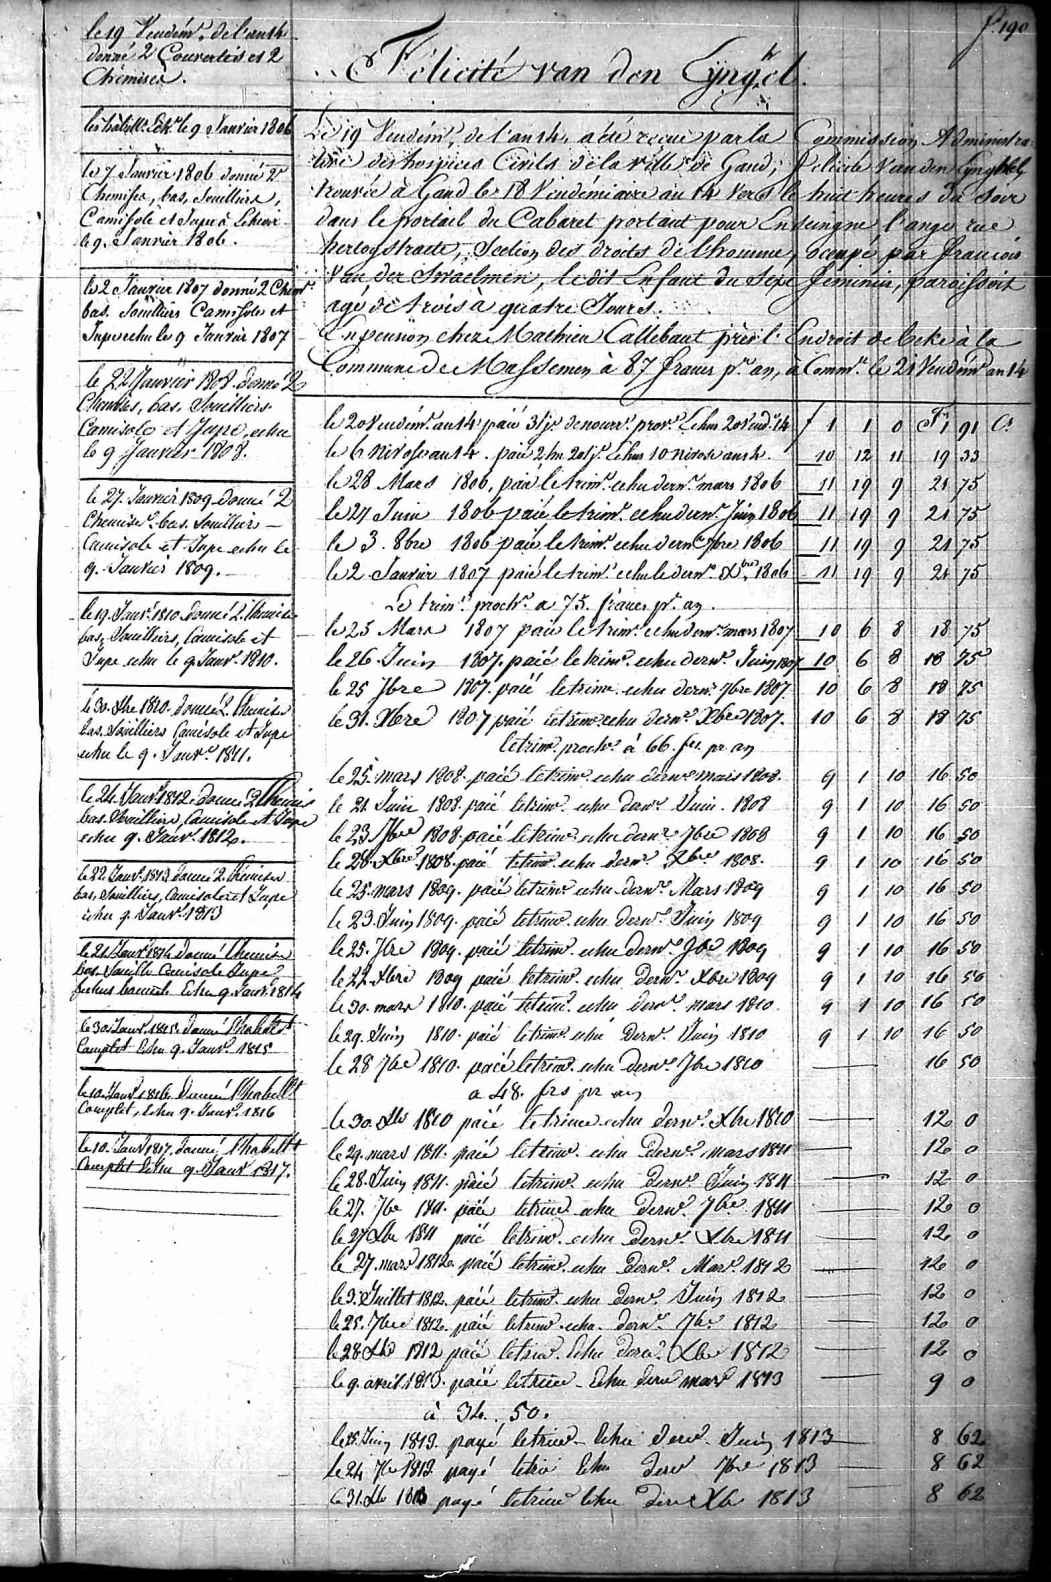 f. 190
Félicité van den Eynghel.
le 19 Vendém.re de l'an 14
donné 2 Couvertes et 2
Chemises.
le 9 Janvier 1806
le 7 Janvier 1806 donné 2
Chemises, bas, Souilliers,
Camisole et Jupe à Echoir
le 9. Janvier 1806.
le 2 Janvier 1807 donné 2 Chem.
bas. Souilliers Camisole et
Jupe echu le 9 Janvier 1807
le 22 Janvier 1808 donné 2
Chemises, bas, Souilliers
Camisole et Jupe, echu
le 9 Janvier 1808.
le 27. Janvier 1809 donné 2
Chemises, bas, Souilliers
Camisole et Jupe echu le
9. Janvier 1809.
le 19. Janv. 1810 donné 2. Chemises
bas, Souilliers, Camisole et
Jupe echu le 9 Janv. 1810.
le 30. Xbre 1810. donné 2. Chemises
bas. Souilliers Camisole et Jupe
echu le 9. Janv. 1811.
le 24. Janv. 1812. donné 2 Chemis
bas. Souilliers, Camisole et Jupe
echu 9. Janv. 1812.
le 22. Janv. 1813 donné 2. Chemises
bas, Souilliers, Camisole et Jupe
echu 9. Janv. 1813
le 21. Janv. 1814 donné Chemises
bas. Souill. Camisole Jupe
Echu 9. Janv. 1814
le 30. Janv. 1815. donné l'habillt
Complet Echu 9. Janv. 1815
le 10. Janv. 1816. donné l'habillt
Complet, Echu 9. Janv. 1816
le 10. Janv. 1817. donné l'habillt
Complet Echu 9. Janv. 1817.
Le 19 Vendém.re de l'an 14, a été reçue par la Commission Administra
tive des hospices Civils de la ville de Gand, Félicité Van den Eynghel
trouvée à Gand le 18 Vendémiaire an 14 vers le huit heures du Soir
dans le portail du Cabaret portant pour Enseingne l'ange rue
hertogstraete, Section des droits de l'homme, ocupé par francois
Van der Straelmen, le dit Enfant du Sexe féminin, paroissoit
agé de trois à quatre Jours.
En pension chez Mathieu Callebaut près l'Endroit de beke à la
Commune de Massemen à 87 francs pr. an, à Comm. le 21 Vendém. an 14
le 20 Vendém. an 14 paié 31 jrs de nourr. prov. Echus 20 Vend. 14 £ 1 1 0 Fr. 1 91 Cs
le 6 Nivose an 14. paié 2 m 20 js. Echus 10 nivose an 14. 10 12 11 19 33
le 28 Mars 1806, paié le trim. echu dern. mars 1806 11 19 9 21 75
le 27 Juin 1806 paié le trim. echu dern. Juin 1806 11 19 9 21 75
le 3. 8bre 1806 paié le trim. echu dern. 7bre 1806 11 19 9 21 75
le 2 Janvier 1807 paié le trim. echu le dern. Xbre 1806 11 19 9 21 75
Le trim. proch. a 75. francs pr. an.
le 25 Mars 1807 paié le trim. echu dern. mars 1807 10 6 8 18 75
le 26 Juin 1807. paié le trim. echu dern. Juin 1807 10 6 8 18 75
le 25 7bre 1807. paié le trim. echu dern. 7bre 1807 10 6 8 18 75
le 31. Xbre 1807 paié le trim. echu dern. Xbre 1807. 10 6 8 18 75
le trim. proch. à 66. frs. pr an
le 25. mars 1808. paié le trim. echu dern. mars 1808. 9 1 10 16 50
le 21 Juin 1808. paié le trim. echu dern. Juin. 1808 9 1 10 16 50
le 23 7bre 1808 paié le trim. echu dern. 7bre 1808 9 1 10 16 50
le 28. Xbre 1808. paié le trim. echu dern. Xbre 1808. 9 1 10 16 50
le 25. mars 1809. paié le trim. echu dern. Mars 1809 9 1 10 16 50
le 23. Juin 1809. paié le trim. echu dern. Juin 1809 9 1 10 16 50
le 25. 7bre 1809. paié le trim. echu dern. 7bre 1809 9 1 10 16 50
le 22. Xbre 1809 paié le trim. echu dern. Xbre 1809 9 1 10 16 50
le 30. mars 1810. paié le trim. echu dern. mars 1810 9 1 10 16 50
le 29. Juin 1810. paié le trim. echu dern. Juin 1810 9 1 10 16 50
le 28 7bre 1810. paié le trim. echu dern. 7bre 1810 16 50
a 48. frs pr an
le 30. Xbre 1810 paié le trim. echu dern. Xbre 1810 12 0
le 29. mars 1811. paié le trim. echu dern. mars 1811 12 0
le 28. Juin 1811. paié le trim. echu dern. Juin 1811 12 0
le 27. 7bre 1811. paié le trim. echu dern. 7bre 1811 12 0
le 27 Xbre 1811 paié le trim. echu dern. Xbre 1811 12 0
le 27. mars 1812. paié le trim. echu dern. Mars. 1812 12 0
le 3. Juillet 1812. paié le trim. echu dern. Juin 1812 12 0
le 25. 7bre 1812. paié le trim. echu. dern. 7bre 1812 12 0
le 28 Xbre 1812 paié le trim. Echu dern. Xbre 1812 12 0
le 9. avril 1813. paié le trim. Echu dern mars 1813 9 0
à 34. 50.
le 25 Juin 1813. payé le trim. Echu dern. Juin 1813 8 62
le 24 7bre 1813. payé le trim Echu dern 7bre 1813 8 62
le 31. Xbre 1813 payé le trim Echu dern Xbre 1813 8 62